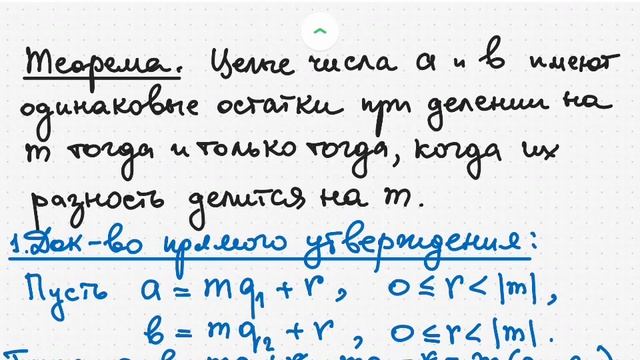 Теорема. Целые числа a и b имеют
одинаковые остатки при делении на
m тогда и только тогда, когда их
разность делится на m.
1. Док-во прямого утверждения:
Пусть a = mq₁ + r, 0 ≤ r < |m|,
b = mq₂ + r, 0 ≤ r < |m|.